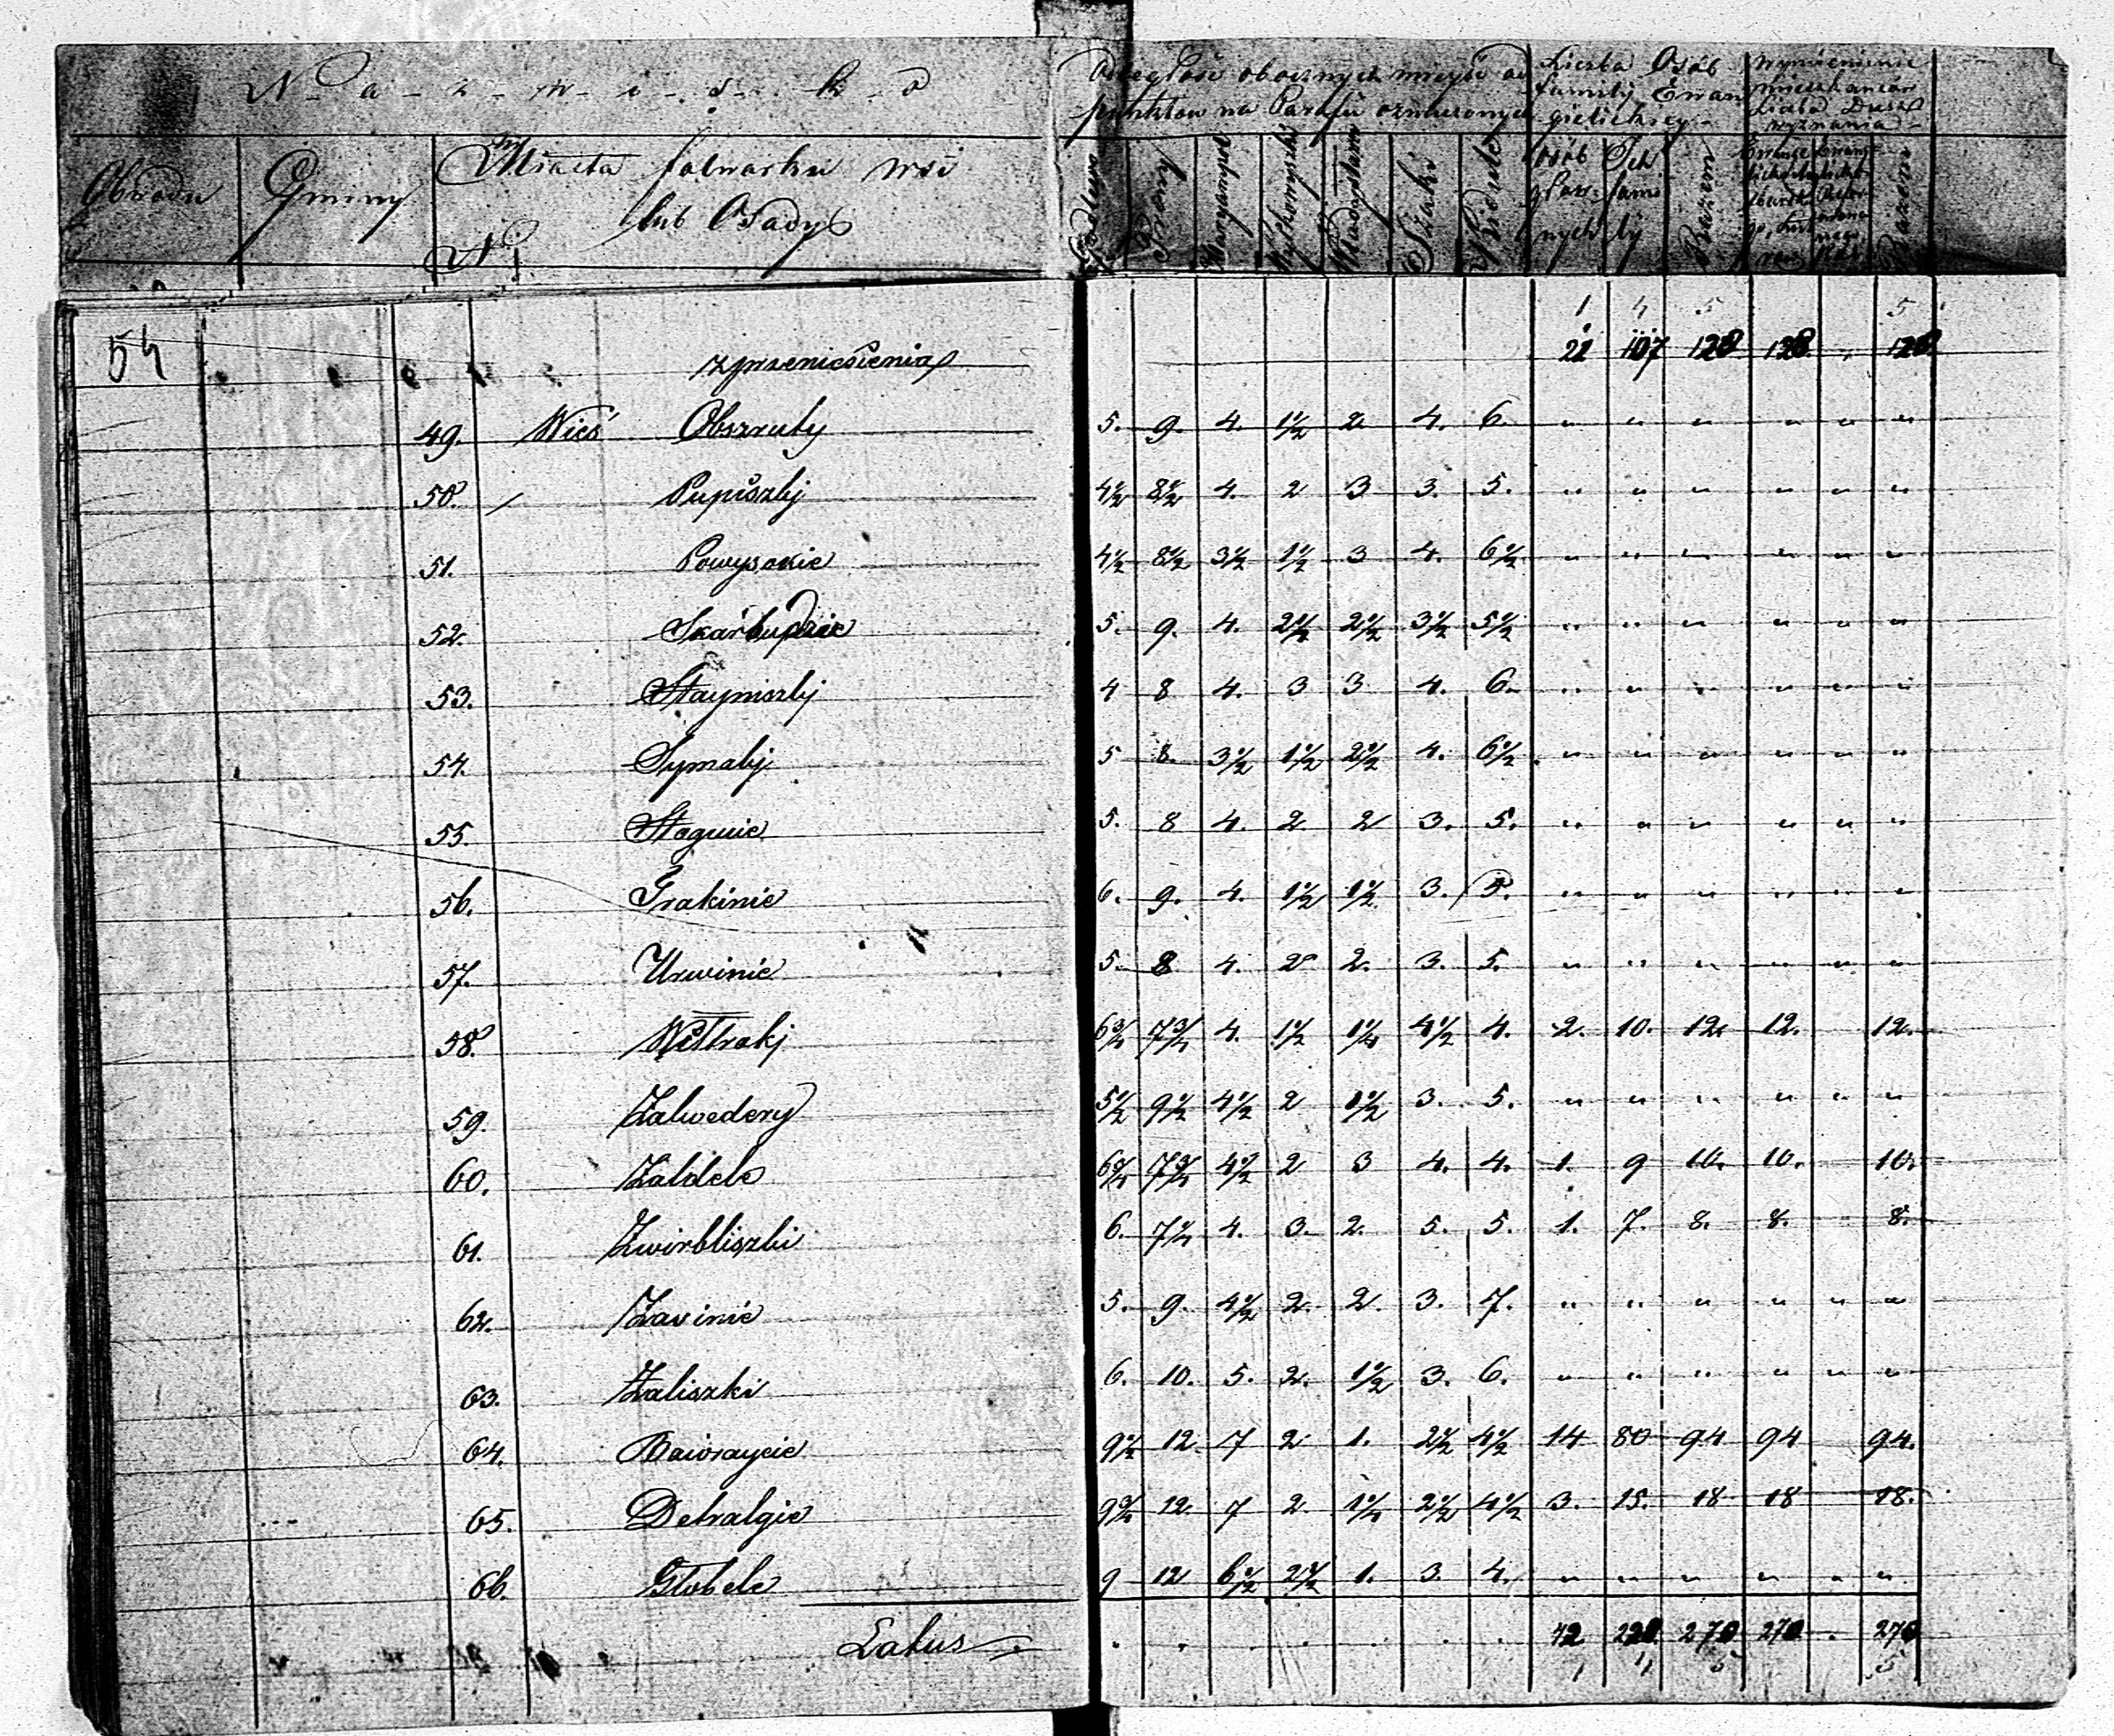 N - a - z - w - i - s - k - o
Odległość obocznych mieysc od
punktow na Parafii oznaczonych
Liczba Osób
familij Ewan
gielickiey
Wymienienie
mieszkańców
Liczba Dusz
wyznania
Obwodu Gminy Miasta folwarku wsi
lub Osady
N
Preny Maryampol Wyłkowyszki Władysławów Szaki
osób
głow
nych
Ich
fami
lij
Razem
Razem
54
1 4 5 5
z przeniesienia 21 107 128 128 128
49. Wieś Obszruty 5. 9. 4. 1½ 2 4. 6. " " " " " "
50. Pupiszkj 4½ 8½ 4. 2 3 3. 5. " " " " " "
51. Powysokie 4½ 8½ 3½ 1½ 3 4. 6½ " " " " " "
52. Skarbudzie 5. 9. 4. 2½ 2½ 3½ 5½ " " " " " "
53. Stayniszkj 4 8 4. 3 3 4. 6. " " " " " "
54. Symakj 5 8. 3½ 1½ 2½ 4. 6½ " " " " " "
55. Stagwie 5. 8 4. 2 2 3. 5. " " " " " "
56. Trakinie 6. 9. 4. 1½ 1½ 3. 5. " " " " " "
57. Urwinie 5. 8 4. 2 2. 3. 5. " " " " " "
58. Wistrakj 6¾ 7¾ 4. 1½ 1¼ 4½ 4. 2. 10. 12. 12. 12.
59. Zalwedery 5½ 9½ 4½ 2 1½ 3. 5. " " " " " "
60. Zaldele 6¾ 7¾ 4½ 2 3 4. 4. 1. 9 10. 10. 10.
61. Zwirbliszki 6. 7¼ 4. 3. 2. 5. 5. 1. 7. 8. 8. 8.
62. Zasinie 5. 9. 4½ 2. 2. 3. 7. " " " " " "
63. Zaliszki 6. 10. 5. 2. 1½ 3. 6. " " " " " "
64. Baioraycie 9¼ 12 7 2 1. 2½ 4½ 14 80 94 94 94.
65. Detralgie 9¾ 12. 7 2 1¼ 2½ 4½ 3. 15. 18 18 18.
66. Globele 9 12 6½ 2½ 1. 3. 4. " " " " " "
Latus 42 228 270 270 270
1 4 5 5